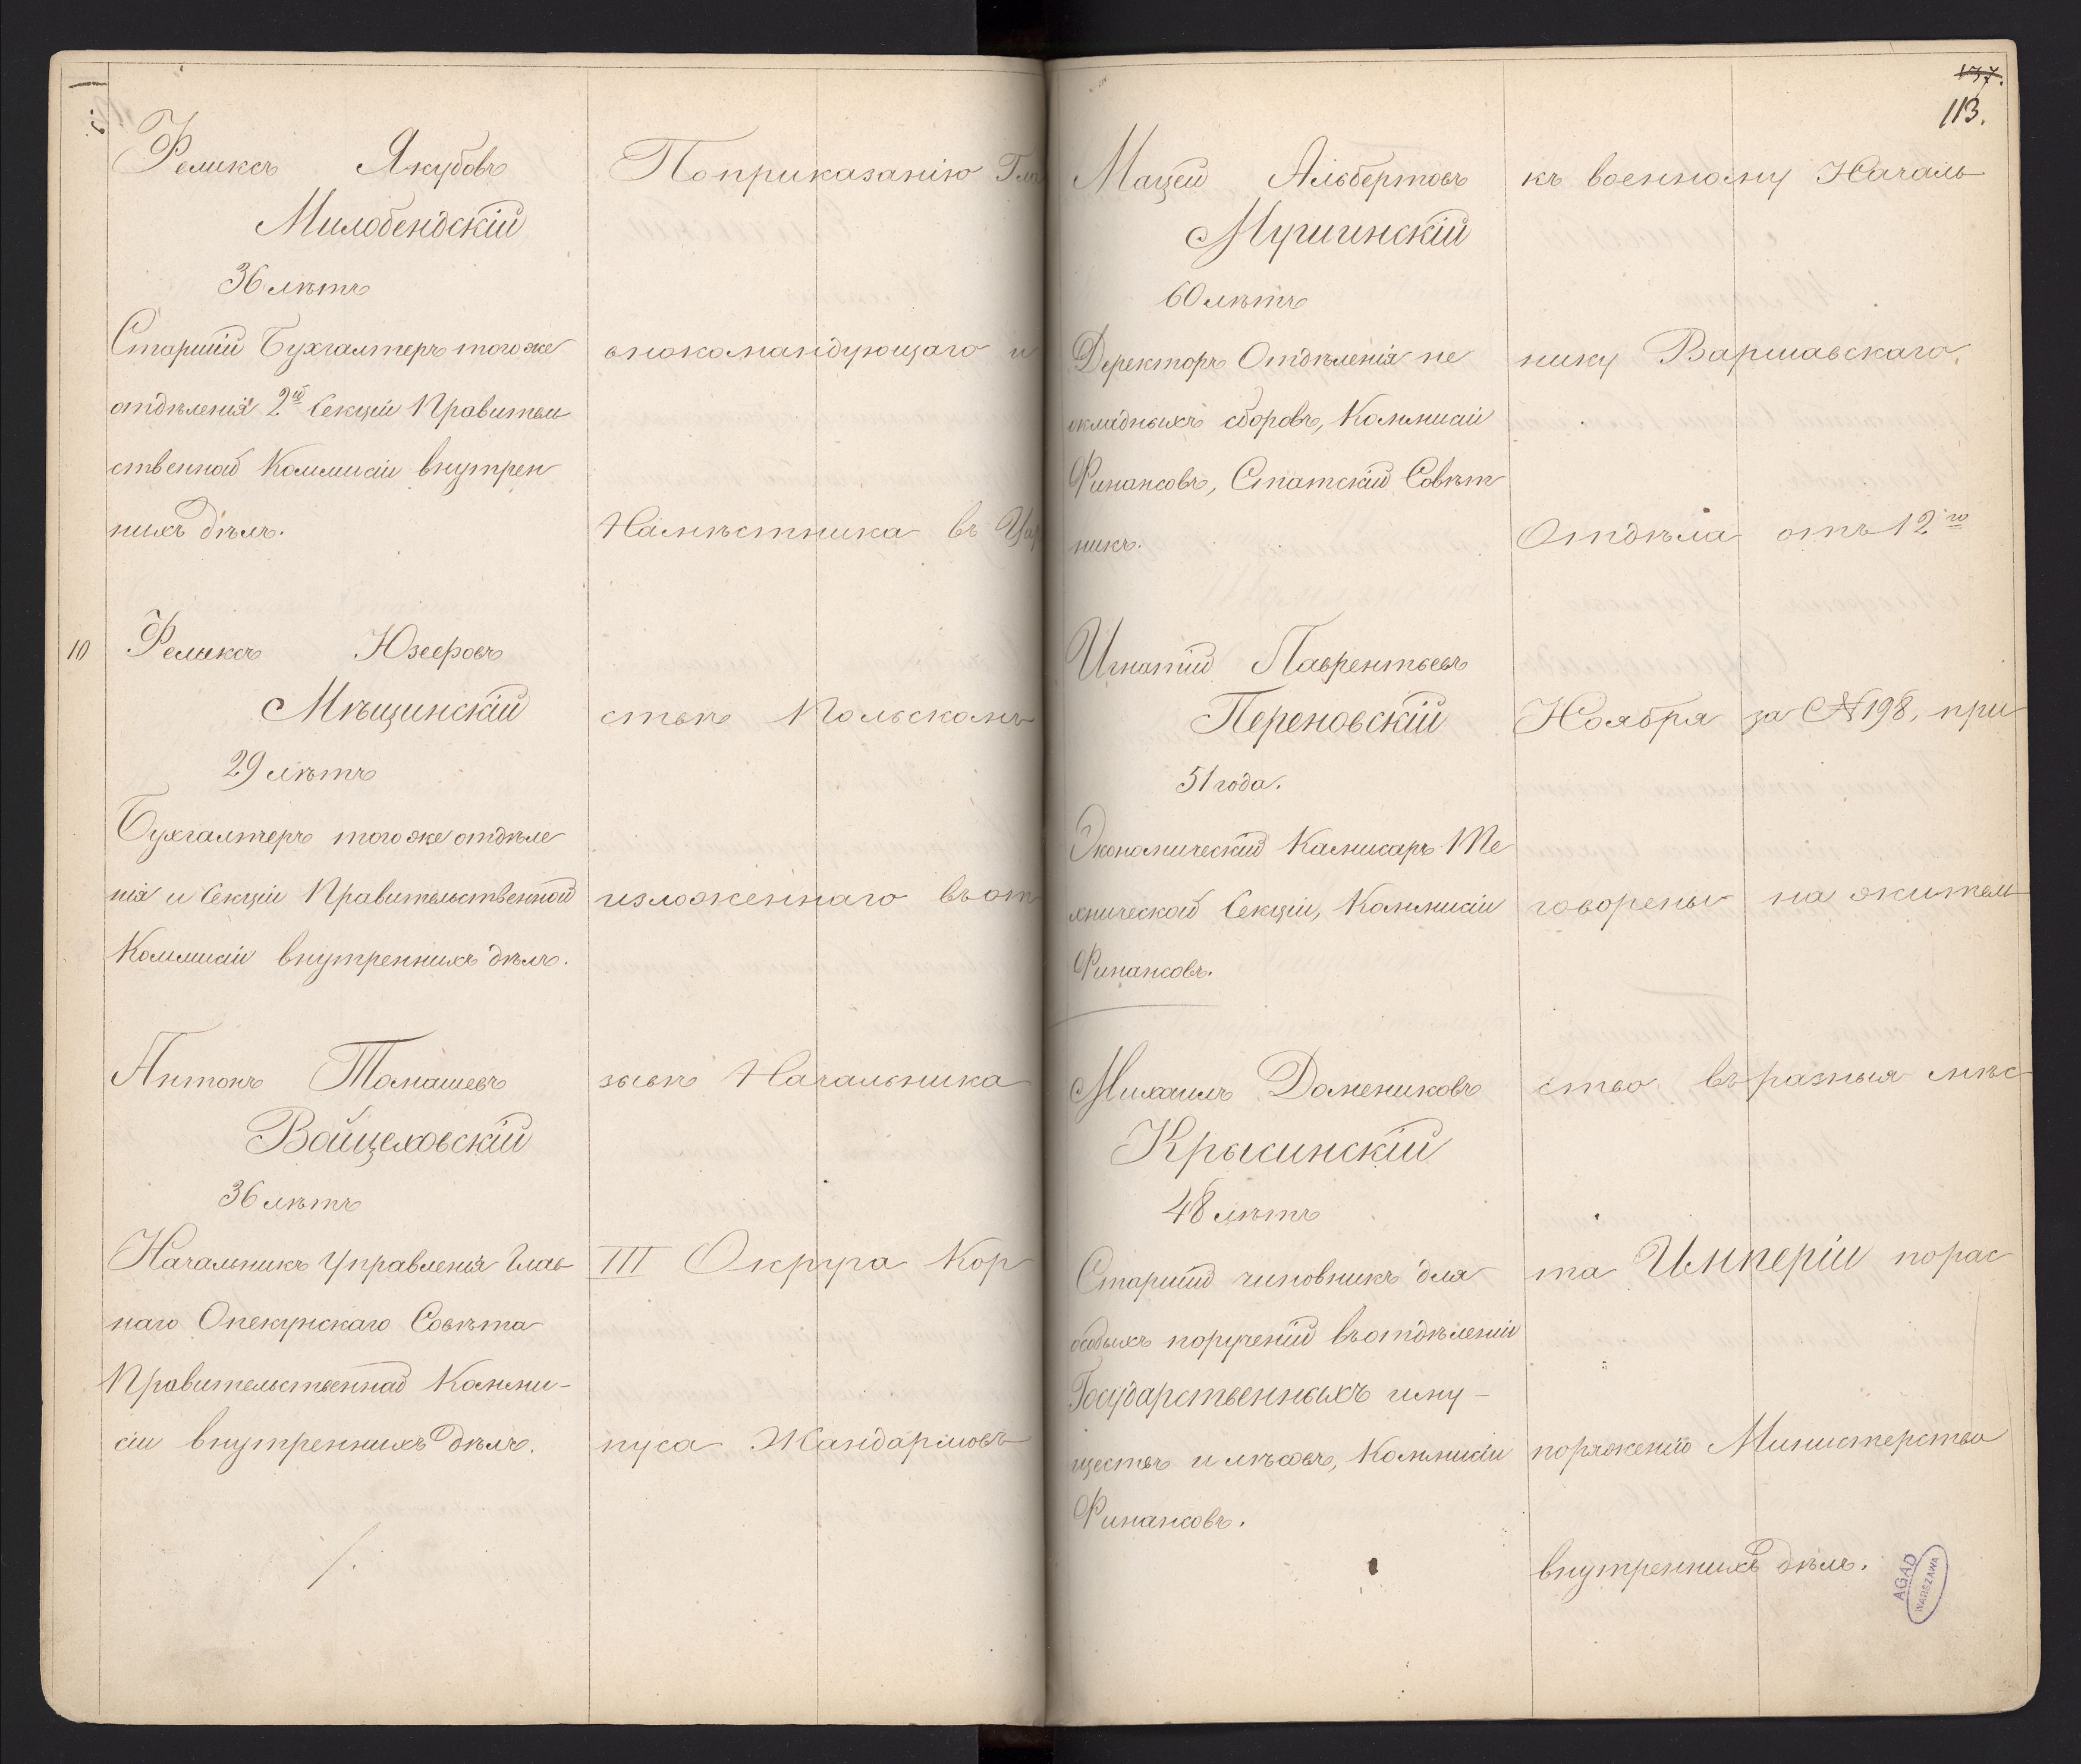 Феликсъ Якубовъ
Милобендскій
36 лѣтъ
Старшій Бухгалтеръ того же
отдѣленія 2ой Секціи Правитель
ственной Коммисіи внутрен
нихъ дѣлъ.
10
Феликсъ Юзефовъ
Мѣщинскій
29 лѣтъ
Бухгалтеръ того же отдѣле
нія и Секціи Правительственной
Коммисіи внутреннихъ дѣлъ.
Антонъ Томашевъ
Войцеховскій
36 лѣтъ
Начальникъ Управленія Глав
наго Опекунскаго Совѣта
Правительственной Комми-
сіи внутреннихъ дѣлъ.
По приказанію Гла
внокомандующаго и
Намѣстника въ Цар
ствѣ Польскомъ
изложеннаго въ от
зывѣ Начальника
III Округа Кор
пуса Жандармовъ
137.
113.
Мацей Альбертовъ
Мушинскій
60 лѣтъ
Деректоръ Отдѣленія не
окладныхъ сборовъ, Коммисіи
Финансовъ, Статскій Совѣт
никъ.
Игнатій Лаврентьевъ
Переновскій
51 года.
Экономический Камисаръ Те
хнической Секціи, Коммисіи
Финансовъ.
Михаилъ Домениковъ
Крысинскій
48 лѣтъ
Старшій чиновникъ для
особыхъ порученій въ отдѣленіи
Государственныхъ иму-
ществъ и лѣсовъ, Коммисіи
Финансовъ.
къ военному Началь
нику Варшавскаго
Отдѣла отъ 12го
Ноября за № 198, при
говорены на житель
ство въ разныя мѣс
та Имперіи по рас
поряженію Министерства
внутреннихъ дѣлъ.
AGAD
WARSZAWA